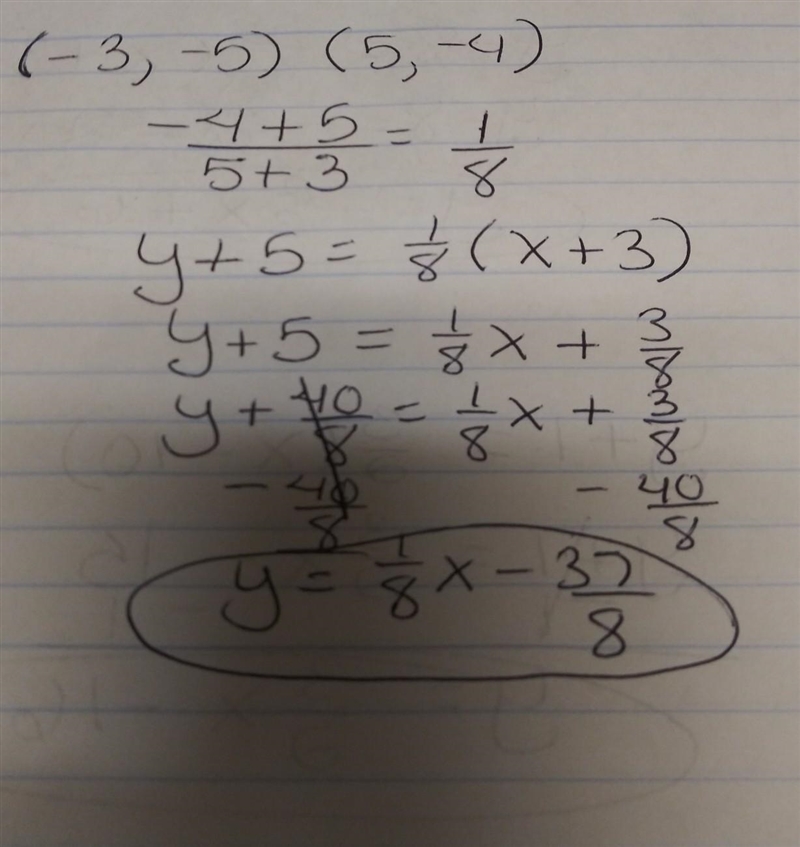 (-3, -5) (5, -4)
-4+5/5+3 = 1/8
y+5 = 1/8(x+3)
y+5 = 1/8x + 3/8
y+ 40/8 = 1/8x + 3/8
- 40/8 - 40/8
y = 1/8x - 37/8